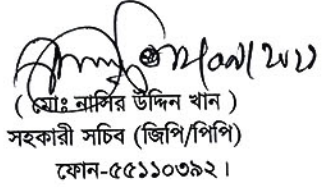 ( মোঃ নাসির উদ্দিন খান )
সহকারী সচিব (জিপি/পিপি)
ফোন-৫৫১১০৩৯২।